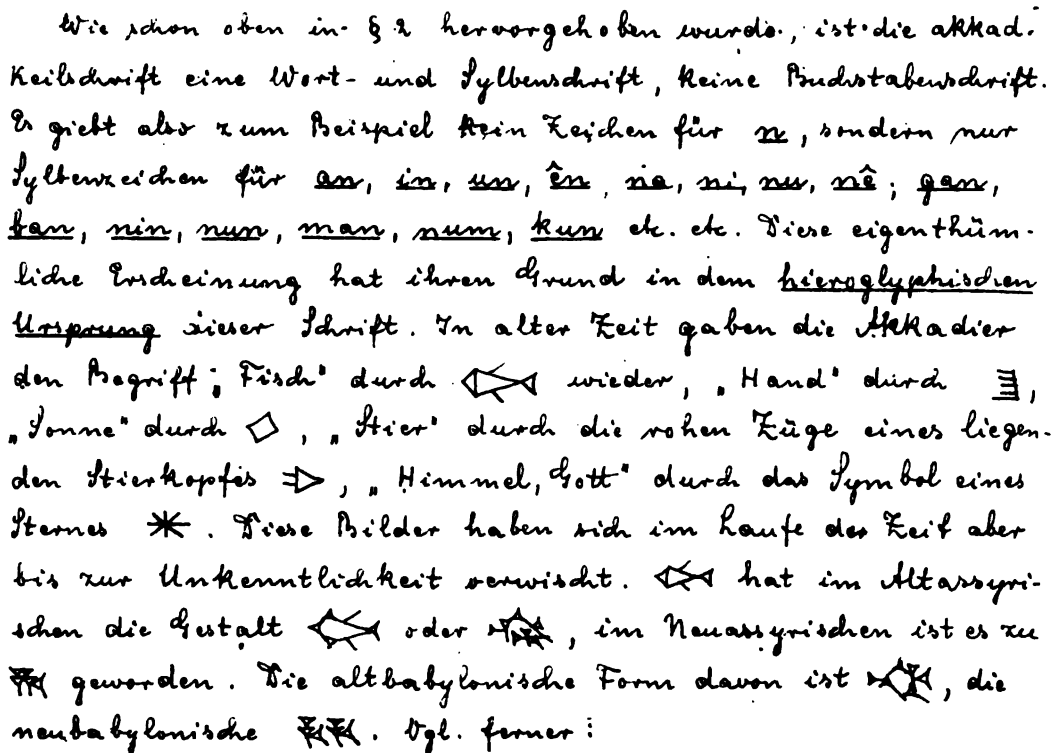 Wie schon oben in § 2 hervorgehoben wurde, ist die akkad.
Keilschrift eine Wort- und Sylbenschrift, keine Buchstabenschrift.
Es giebt also zum Beispiel kein Zeichen für n, sondern nur
Sylbenzeichen für an, in, un, ên, na, ni, nu, nê; gan,
ban, nin, nun, man, num, kun etc. etc. Diese eigenthüm-
liche Erscheinung hat ihren Grund in dem hieroglyphischen
Ursprung dieser Schrift. In alter Zeit gaben die Akkadier
den Begriff „Fisch" durch wieder, „Hand" durch ,
„Sonne" durch , „Stier" durch die rohen Züge eines liegen-
den Stierkopfes , „Himmel, Gott" durch das Symbol eines
Sternes . Diese Bilder haben sich im Laufe der Zeit aber
bis zur Unkenntlichkeit verwischt. hat im Altassyri-
schen die Gestalt oder , im Neuassyrischen ist es zu
geworden. Die altbabylonische Form davon ist , die
neubabylonische . Vgl. ferner: